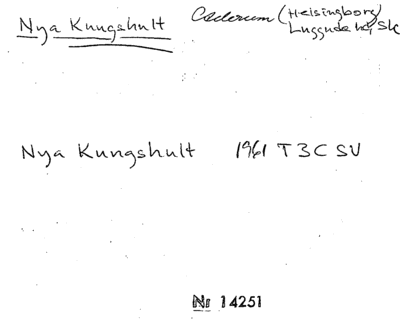 Nya Kungshult
Cederum (Helsingborg)
Luggude hd, Sk
Nya Kungshult 1961 T3C SV
Nr 14251